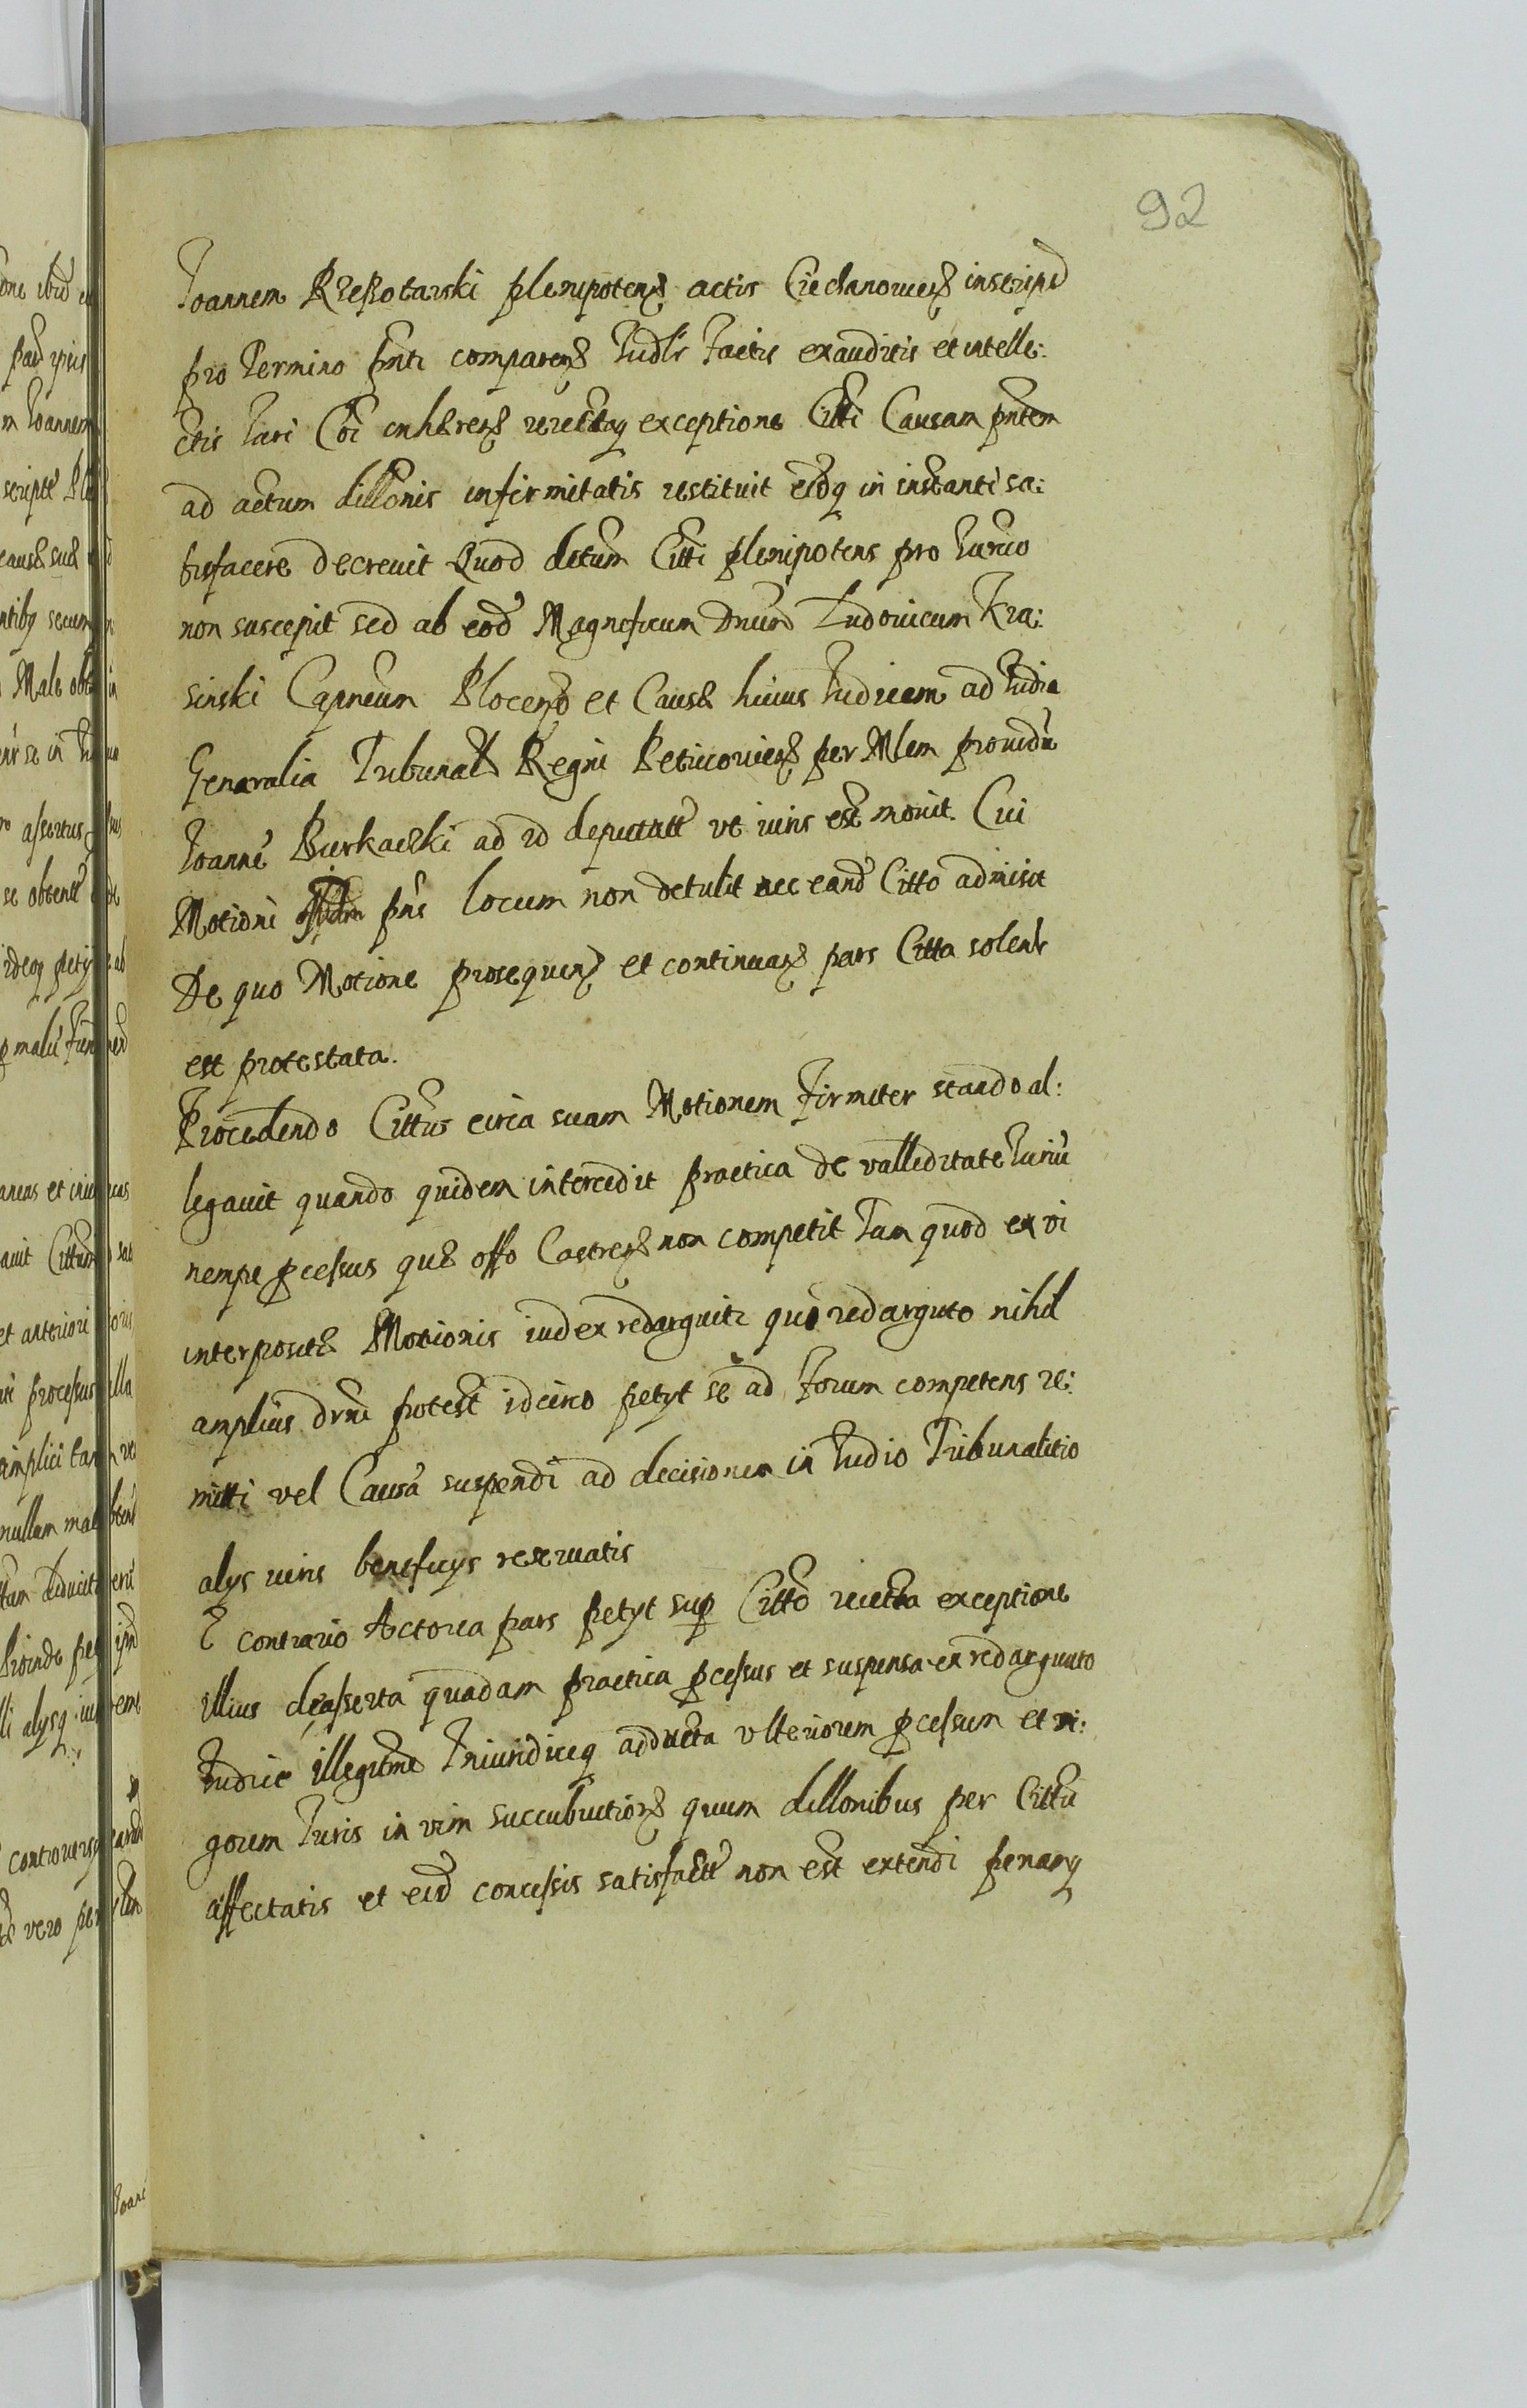 92
Joannem Rzeszotarski plenipoten̄ actis Ciechanovien̄ inscript̄
pro Termino pn̄ti comparen̄ Iudlr̄ Factis exauditis et intelle:
ctis Iuri Cōi inhæren̄ reiectaq exceptione Citti Causam pn̄tem
ad actum dillōnis infirmitatis restituit eidq in instanti sa:
tisfacere decrevit Quod dctum Citti plenipotens pro Iurato
non suscepit sed ab eōd Magnificum Dnum Ludovicum Kra:
sinski Capneum Plocen̄ et Causæ huius Iudicem ad Iudia
Generalia Tribunal̄ Regni Petricovien̄ per Mlem providū
Joannē Burkacki ad id deputatū ut iuris est movit. Cui
Motioni pn̄s locum non detulit nec eand̄ Citto admisit
De quo Motione prosequen̄ et continuan̄ pars Citta solenr
est protestata.
Procedendo Cittus circa suam Motionem Firmiter stando al:
legavit quando quidem intercedit practica de validitate Iuriū
nempe pcessus quæ offo Castren̄ non competit Tam quod ex vi
interpositæ Motionis iudex redarguitr quo redarguto nihil
amplius drni potest idcirco petyt se ad Forum competens re:
mitti vel Causā suspendi ad decisionem in Iudio Tribunalitio
alys iuris beneficys reservatis
E contrario Actorea pars petyt sup Citto reiecta exceptione
illius de asserta quadam practica pcessus et suspensa ex redarguto
Iudice illegitime Iniuridiceq adducta ulteriorem pcessum et ri:
gorem Iuris in vim succubution̄ quum dillonibus per Cittū
affectatis et eid̄ concessis satisfactū non est extendi penamq